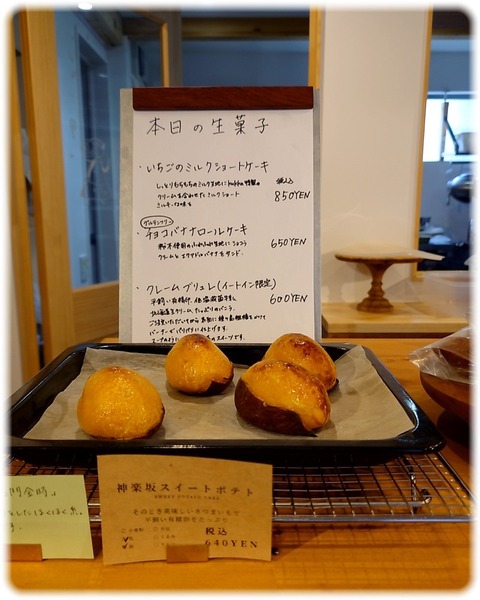 本日の生菓子
・いちごのミルクショートケーキ
しっとりもちもちのミルク生地に
クリームを合わせたミルクショート
税込
850YEN
グルテンフリー
・チョコバナナロールケーキ
粉不使用のふわふわ生地に
クリームとエクアドルバナナをサンド。
650YEN
・クレームブリュレ(イートイン限定)
平飼い有精卵、低温殺菌牛乳
北海道生クリーム、たっぷりのバニラ。
バーナーでパリパリに
スイーツです。
600YEN
神楽坂スイートポテト
SWEET POTATO CAKE
そのとき美味しいさつまいもで
平飼い有精卵をたっぷり
税込
640YEN